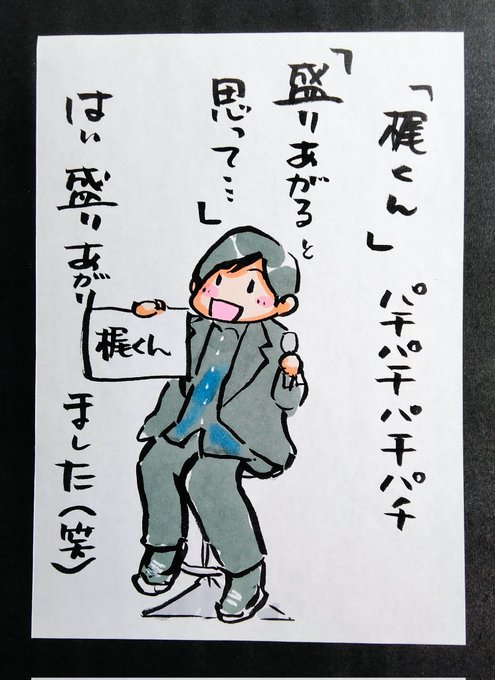 「梶くん」パチパチパチパチ
「盛りあがると
思って…」
はい盛りあがりました(笑)
梶くん